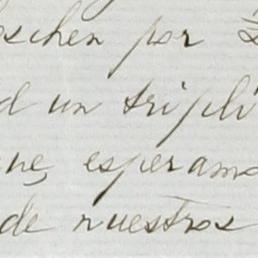 schen por
d un tripli
ne, esperamo
de nuestros